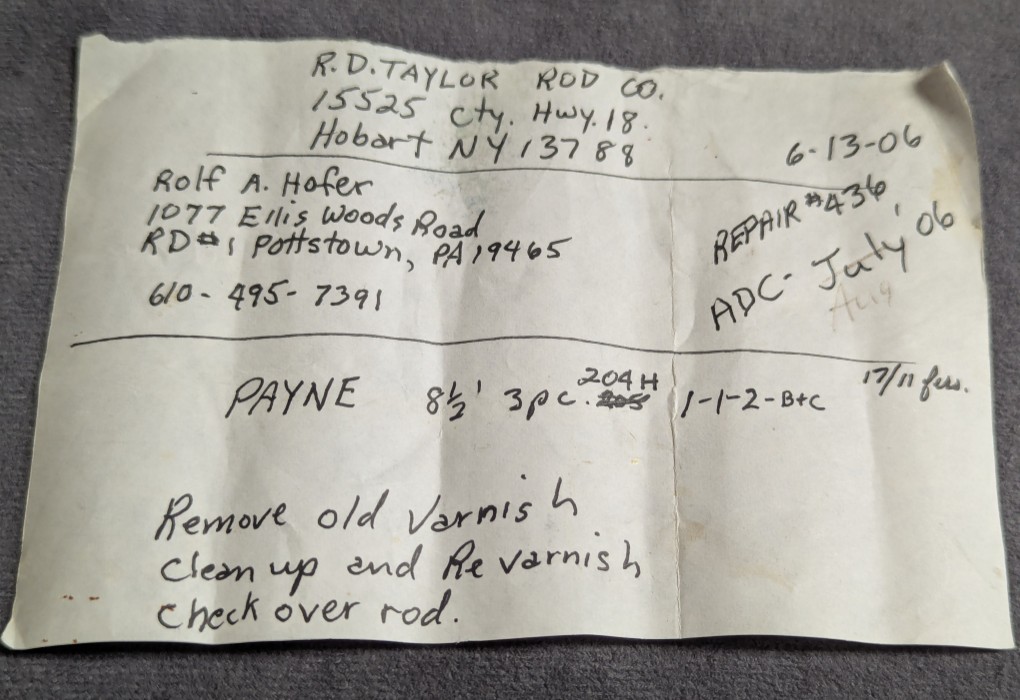 R.D. TAYLOR ROD CO.
15525 Cty. Hwy. 18.
Hobart NY 13788
6-13-06
Rolf A. Hofer
1077 Ellis Woods Road
RD #1 Pottstown, PA 19465
610-495-7391
REPAIR #436
ADC- July '06
Aug
PAYNE 8½' 3pc. 204H 1-1-2-B+C
17/11 fers.
Remove old varnish
clean up and Revarnish
check over rod.